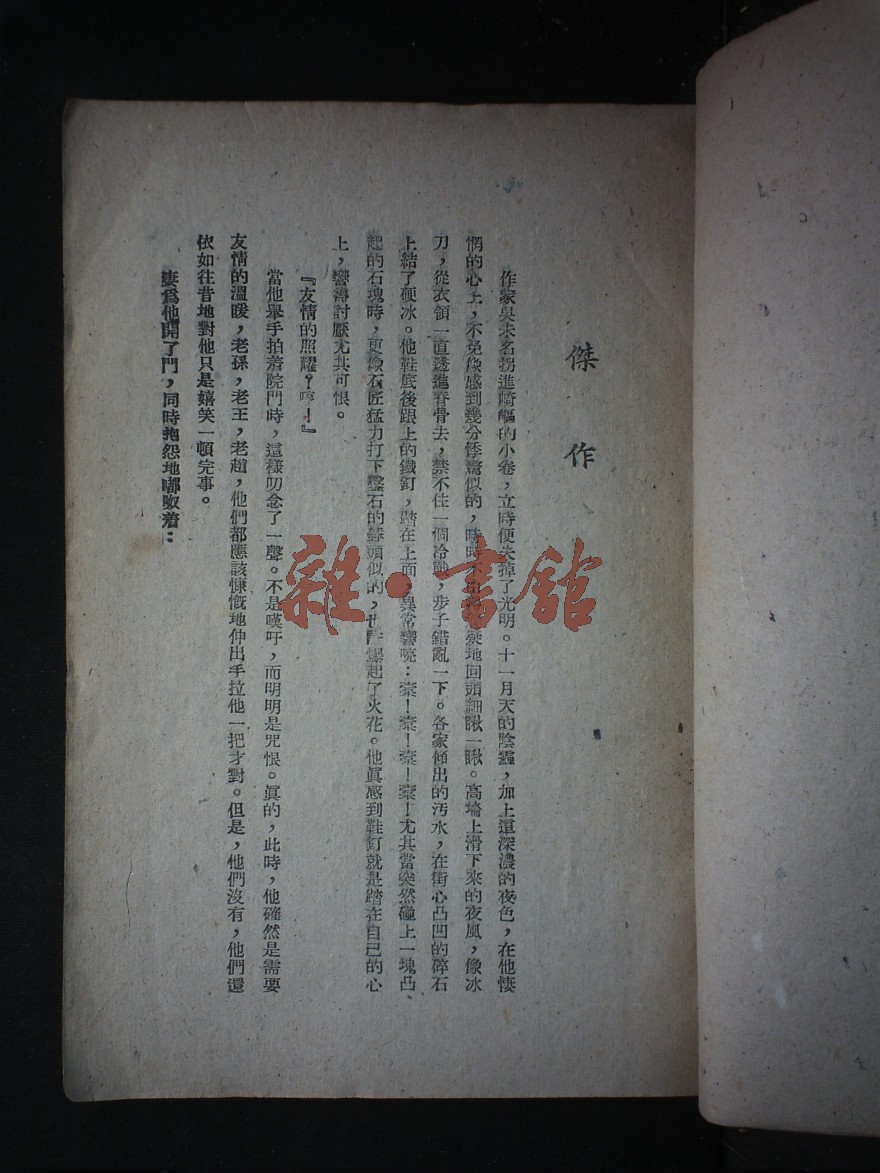 傑作
作家吳未名拐進崎嶇的小巷，立時便失掉了光明。十一月天的陰霾，加上這深濃的夜色，在他悽
惘的心上，不免像感到幾分悸驚似的，時時不地回頭細瞅一瞅。高墻上滑下來的夜風，像冰
刀，從衣領一直透進脊骨去，禁不住一個冷戰，步子錯亂一下。各家傾出的污水，在街心凸凹的碎石
上結了硬冰。他鞋底後跟上的鐵釘，踏在上面，異常響喨：橐！橐！橐！橐！尤其當突然碰上一塊凸
起的石塊時，更像石匠猛力打下鑿石的錘頭似的，也許爆起了火花。他眞感到鞋釘就是踏在自己的心
上，響得討厭尤其可恨。
『友情的照耀？哼！』
當他舉手拍着院門時，這樣叨念了一聲。不是嘆吁，而明明是咒恨。眞的，此時，他確然是需要
友情的溫暖，老孫，老王，老趙，他們都應該慷慨地伸出手拉他一把才對。但是，他們沒有，他們還
依如往昔地對他只是嬉笑一頓完事。
妻爲他開了門，同時抱怨地嘟噥着：
雜·書館